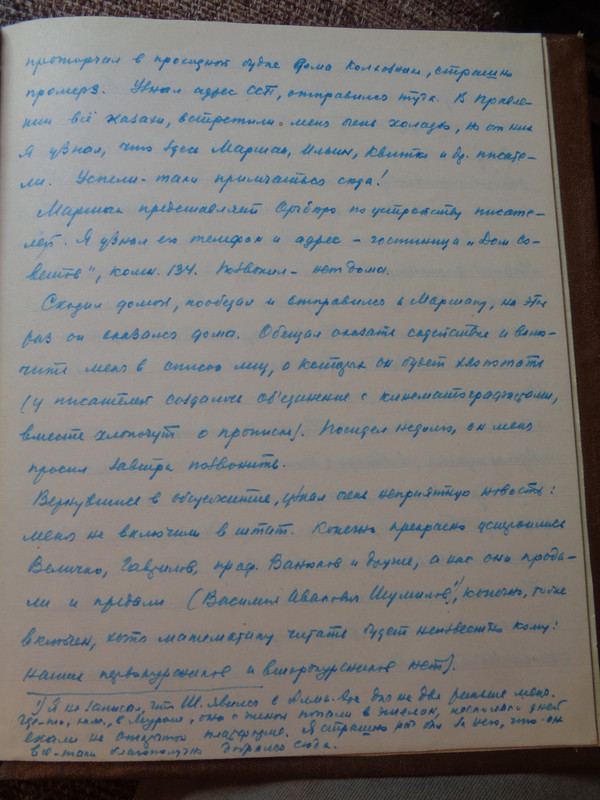 проторчал в проходной будке Дома Колхозника, страшно
промерз. Узнал адрес ССП, отправился туда. В Правле-
нии всё казахи, встретили меня очень холодно, но от них
я узнал, что здесь Маршак, Ильин, Квитко и др. писате-
ли. Успели-таки примчаться сюда!
Маршак представляет Оргбюро по устройству писате-
лей. Я узнал его телефон и адрес – гостиница „Дом Со-
ветов", комн. 134. Позвонил – нет дома.
Сходил домой, пообедал и отправился к Маршаку, на этот
раз он оказался дома. Обещал оказать содействие и вклю-
чить меня в список лиц, о которых он будет хлопотать
(у писателей создалось об'единение с кинематографщиками,
вместе хлопочут о прописке). Посидел недолго, он меня
просил завтра позвонить.
Вернувшись в общежитие, узнал очень неприятную новость:
меня не включили в штат. Конечно прекрасно устроились
Величко, Гаврилов, проф. Ванюков и другие, а нас они прода-
ли и предали (Василий Иванович Шумилов¹⁾, конечно, тоже
включен, хотя математику читать будет неизвестно кому:
наших первокурсников и второкурсников нет).
¹⁾ Я не записал, что Ш. явился в Алма-Ата дня на два раньше меня.
Где-то, в Муроме, они с женой попали в эшелон, несколько дней
ехали на открытой платформе. Я страшно рад был за него, что он
всё-таки благополучно добрался сюда.